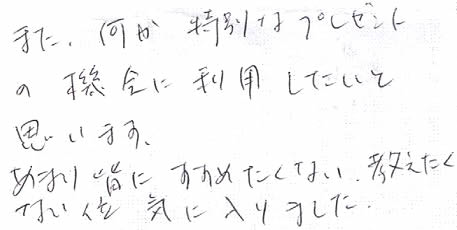 また、何か特別なプレゼント
の機会に利用したいと
思います、
あまり皆にすすめたくない、教えたく
ない位気に入りました。